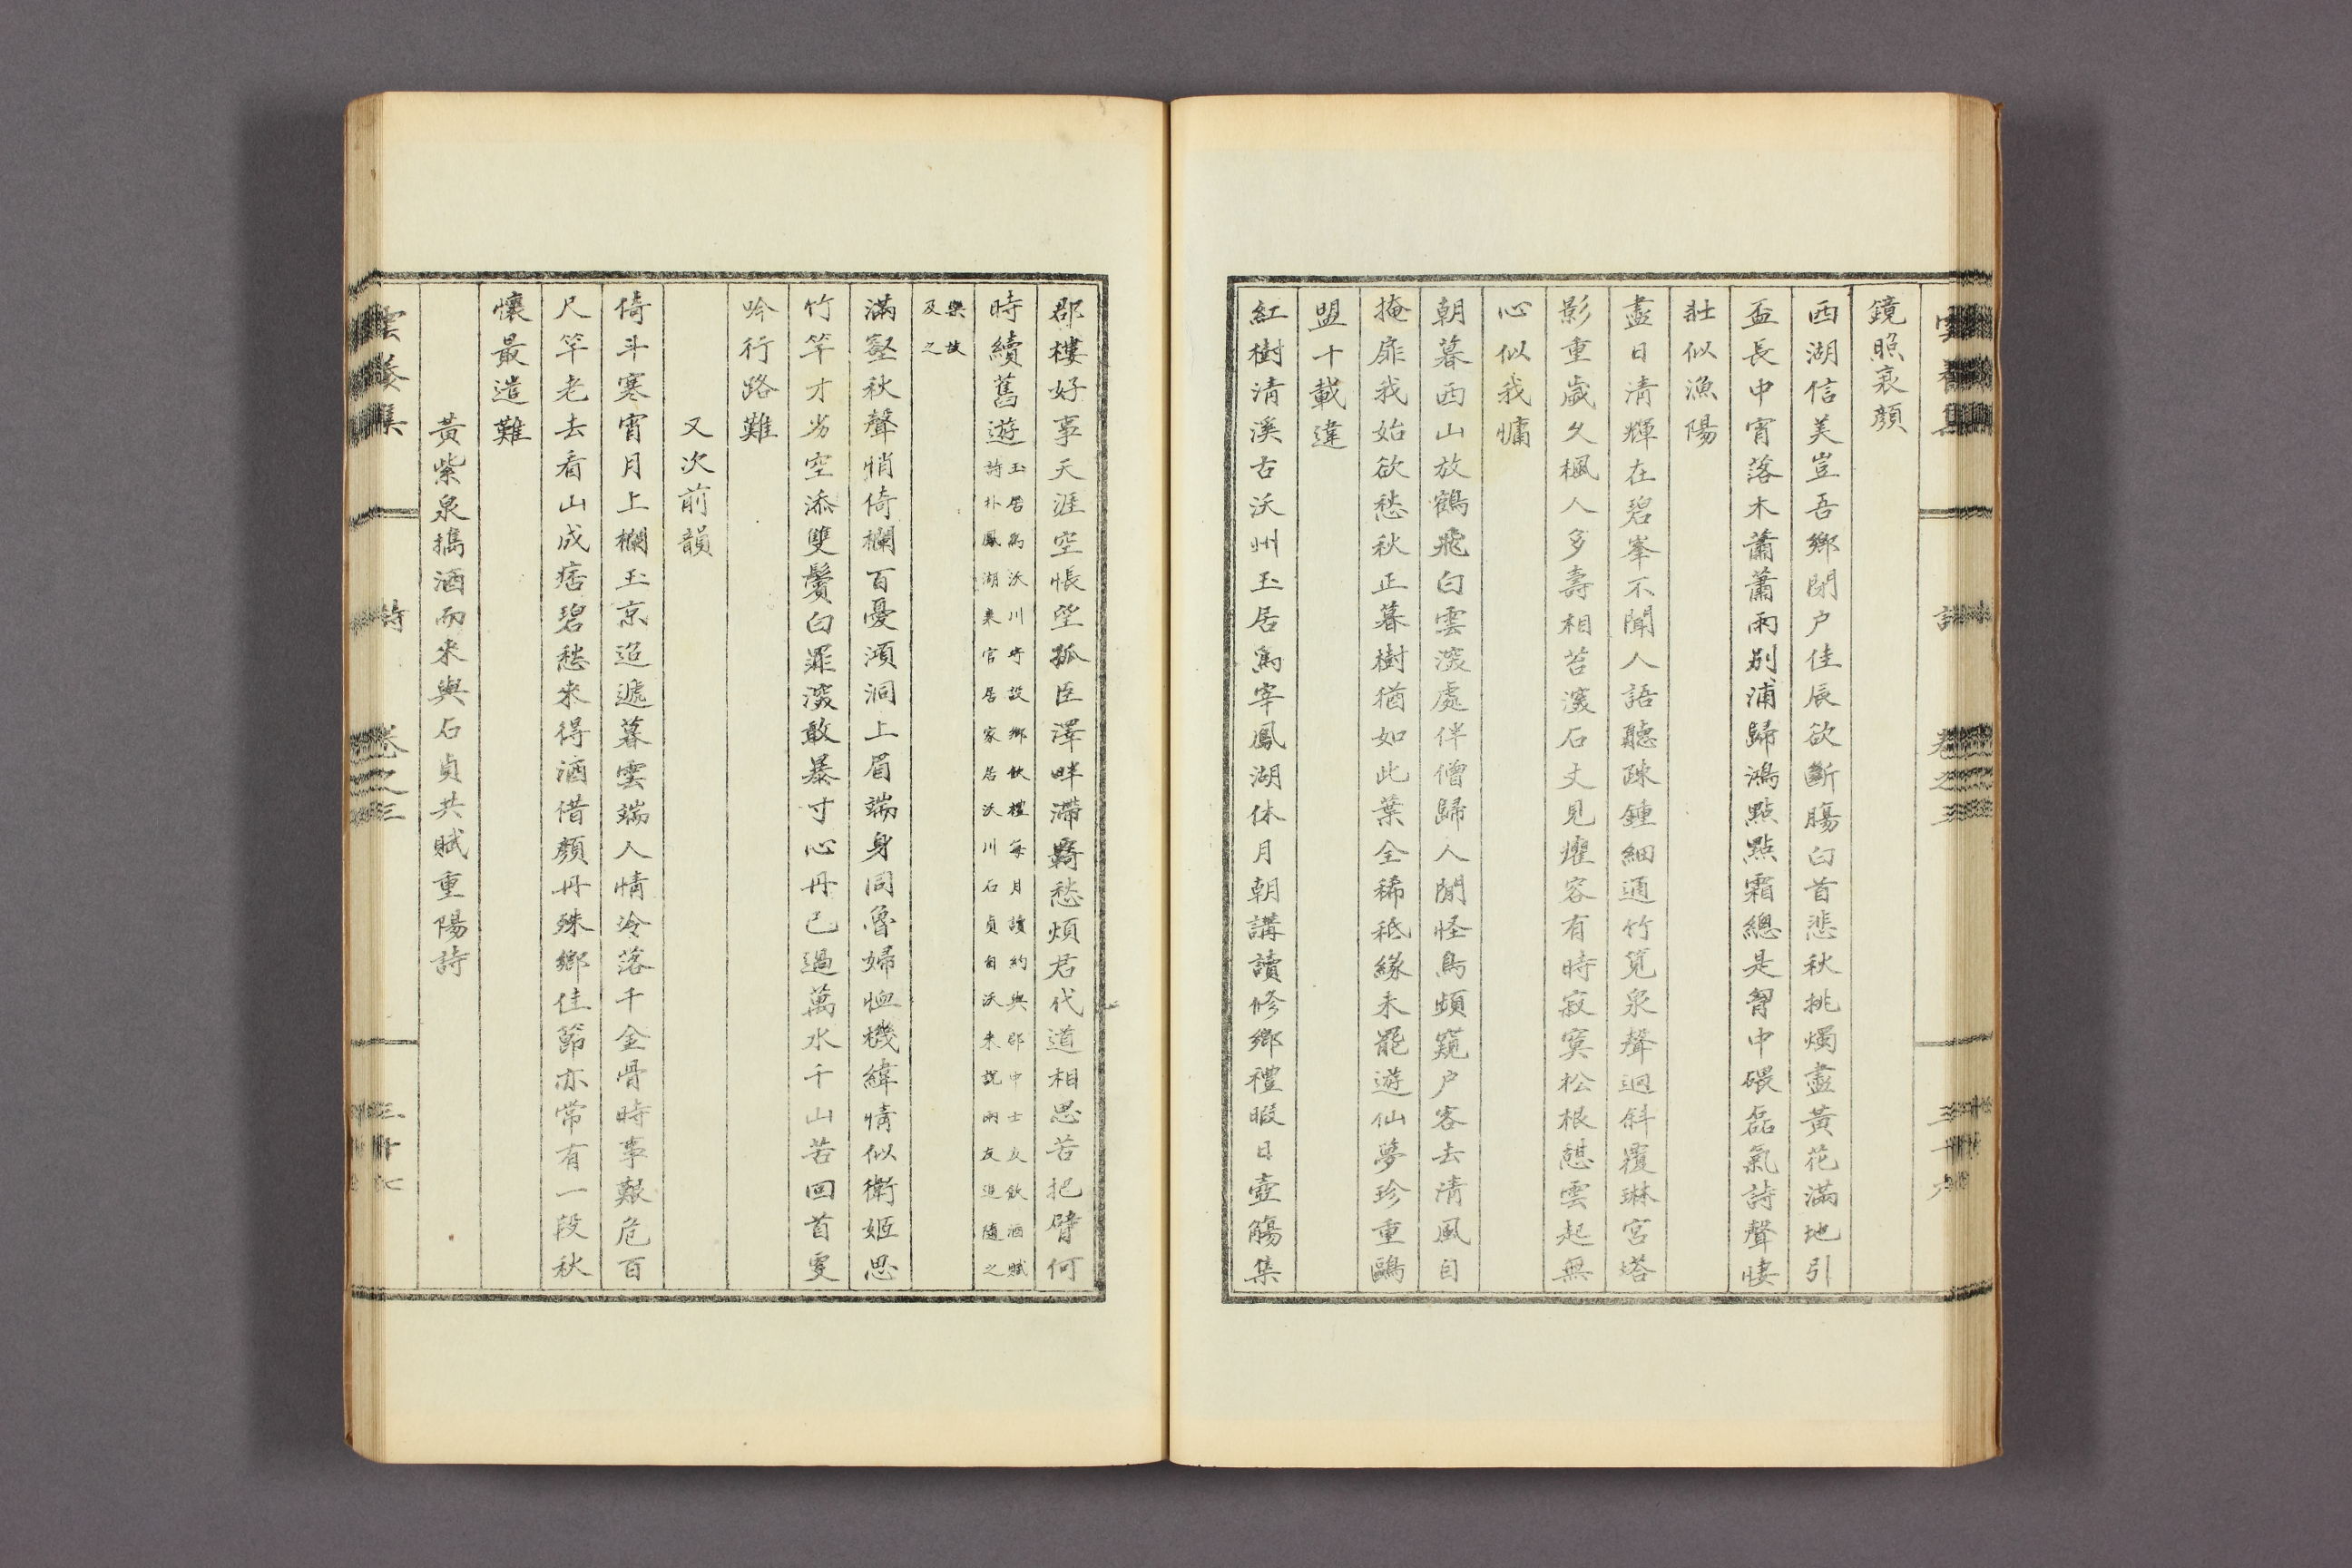 鏡照衰顏
西湖信美豈吾鄉閉户佳辰欲斷膓白首悲秋挑燭盡黃花滿地引
盃長中宵落木蕭蕭雨别浦歸鴻點點霜總是胷中磈磊氣詩聲悽
壯似漁陽
盡日清輝在碧峯不聞人語聽踈鍾細通竹筧泉聲迥斜覆琳宮塔
影重歲久楓人多壽相苔深石丈見癯容有時寂寞松根憇雲起無
心似我慵
朝暮西山放鶴飛白雲深處伴僧歸人閒怪鳥頻窺户客去清風自
掩扉我始欲愁秋正暮樹猶如此葉全稀秪緣未罷遊仙夢珍重鷗
盟十載違
紅樹清溪古沃州玉居爲宰鳳湖休月朝講讀修鄉禮暇日壺觴集
郡樓好事天涯空悵望孤臣澤畔滯羇愁煩君代道相思苦把臂何
時續舊遊
玉居爲沃川時設鄉飲禮每月讀約與郡中士友飲酒賦
詩朴鳳湖来官居家居沃川石貞自沃来說兩友追隨之
樂故
及之
滿壑秋聲悄倚欄百憂澒洞上眉端身同魯婦恤機緯情似衛姬思
竹竿才劣空添雙鬢白罪深敢暴寸心丹已過萬水千山苦回首更
吟行路難
又次前韻
倚斗寒宵月上欄玉京迢遞暮雲端人情冷落千金骨時事艱危百
尺竿老去看山成痼碧愁來得酒借顏丹殊鄉佳節亦常有一段秋
懷最遣難
黃紫泉携酒而来與石貞共賦重陽詩
詩
卷之三